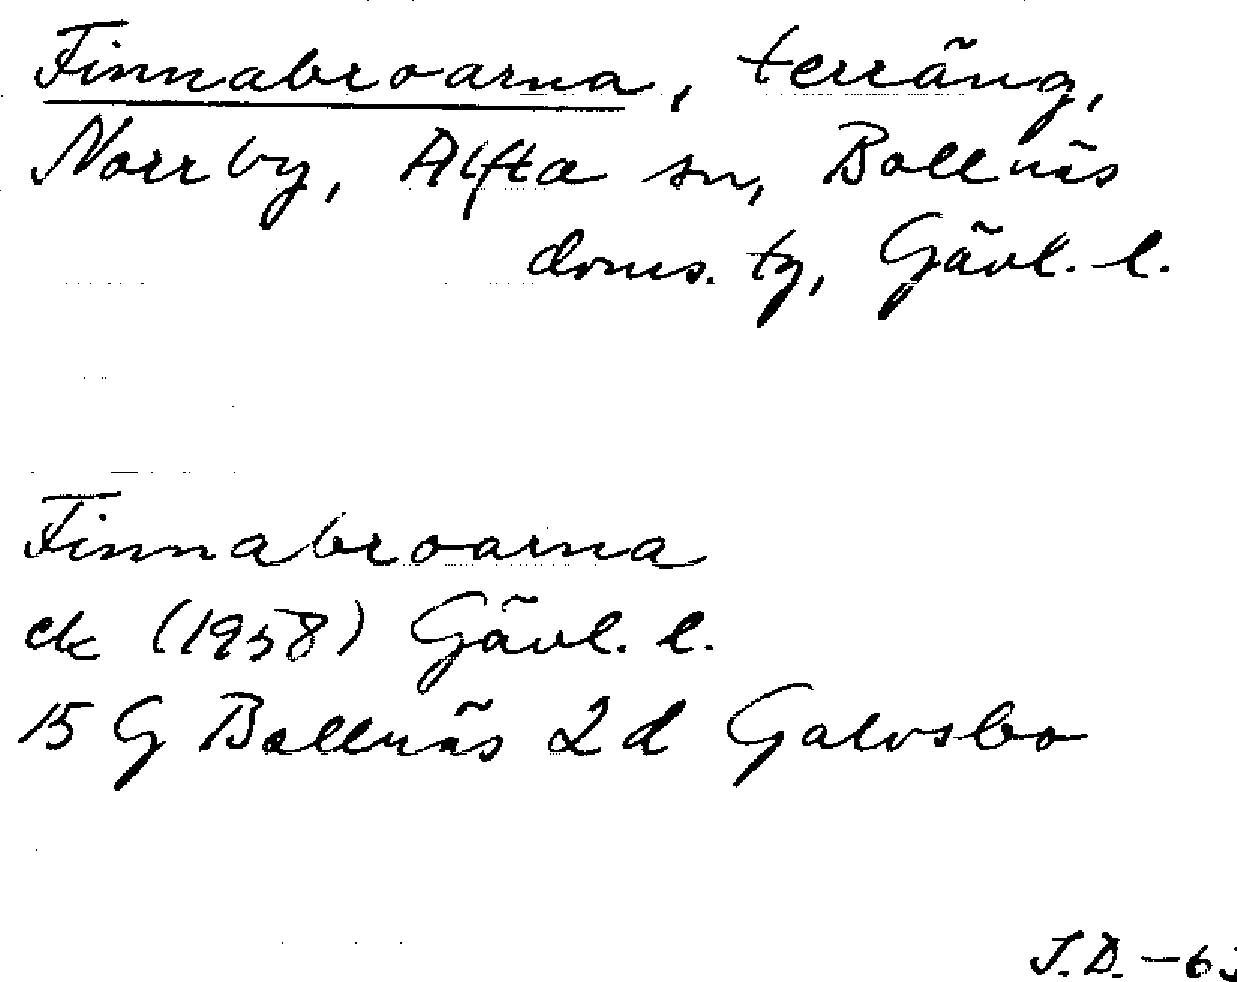 Finnabroarna, terräng,
Norrby, Alfta sn, Bollnäs
doms. tg, Gävl. l.
Finnabroarna
ek (1958) Gävl. l.
15 G Bollnäs 2d Galvsbo
J.D. -63